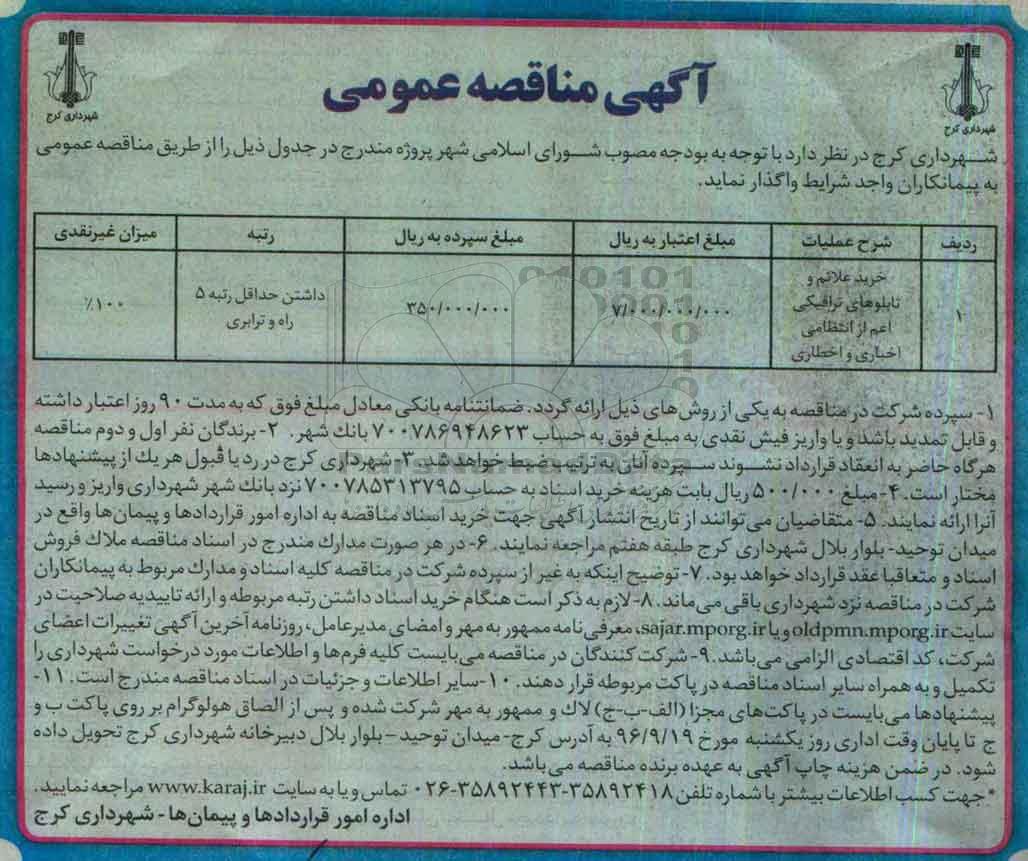 آگهی مناقصه عمومی
شهرداری کرج
شهرداری کرج
شهرداری کرج در نظر دارد با توجه به بودجه مصوب شورای اسلامی شهر پروژه مندرج در جدول ذیل را از طریق مناقصه عمومی
به پیمانکاران واجد شرایط واگذار نماید.
ردیف شرح عملیات مبلغ اعتبار به ریال مبلغ سپرده به ریال رتبه میزان غیرنقدی
۱ خرید علائم و تابلوهای ترافیکی اعم از انتظامی اخباری و اخطاری ۷/۰۰۰/۰۰۰/۰۰۰ ۳۵۰/۰۰۰/۰۰۰ داشتن حداقل رتبه ۵ راه و ترابری ۱۰۰٪
۱- سپرده شرکت در مناقصه به یکی از روش های ذیل ارائه گردد. ضمانتنامه بانکی معادل مبلغ فوق که به مدت ۹۰ روز اعتبار داشته
و قابل تمدید باشد و با واریز فیش نقدی به مبلغ فوق به حساب ۷۰۰۷۸۶۹۴۸۶۲۳ بانک شهر. ۲- برندگان نفر اول و دوم مناقصه
هرگاه حاضر به انعقاد قرارداد نشوند سپرده آنان به ترتیب ضبط خواهد شد. ۳- شهرداری کرج در رد یا قبول هر یک از پیشنهادها
مختار است. ۴- مبلغ ۵۰۰/۰۰۰ ریال بابت هزینه خرید اسناد به حساب ۷۰۰۷۸۵۳۱۳۷۹۵ نزد بانک شهر شهرداری واریز و رسید
آنرا ارائه نمایند. ۵- متقاضیان می توانند از تاریخ انتشار آگهی جهت خرید اسناد مناقصه به اداره امور قراردادها و پیمان ها واقع در
میدان توحید- بلوار بلال شهرداری کرج طبقه هفتم مراجعه نمایند. ۶- در هر صورت مدارک مندرج در اسناد مناقصه ملاک فروش
اسناد و متعاقبا عقد قرارداد خواهد بود. ۷- توضیح اینکه به غیر از سپرده شرکت در مناقصه کلیه اسناد و مدارک مربوط به پیمانکاران
شرکت در مناقصه نزد شهرداری باقی می ماند. ۸- لازم به ذکر است هنگام خرید اسناد داشتن رتبه مربوطه و ارائه تاییدیه صلاحیت در
سایت oldpmn.mporg.ir و یا sajar.mporg.ir، معرفی نامه ممهور به مهر و امضای مدیرعامل، روزنامه آخرین آگهی تغییرات اعضای
شرکت، کد اقتصادی الزامی می باشد. ۹- شرکت کنندگان در مناقصه می بایست کلیه فرم ها و اطلاعات مورد درخواست شهرداری را
تکمیل و به همراه سایر اسناد مناقصه در پاکت مربوطه قرار دهند. ۱۰- سایر اطلاعات و جزئیات در اسناد مناقصه مندرج است. ۱۱-
پیشنهادها می بایست در پاکت های مجزا (الف-ب-ج) لاک و ممهور به مهر شرکت شده و پس از الصاق هولوگرام بر روی پاکت ب و
ج تا پایان وقت اداری روز یکشنبه مورخ ۹۶/۹/۱۹ به آدرس کرج- میدان توحید - بلوار بلال دبیرخانه شهرداری کرج تحویل داده
شود. در ضمن هزینه چاپ آگهی به عهده برنده مناقصه می باشد.
*جهت کسب اطلاعات بیشتر با شماره تلفن ۳۵۸۹۲۴۱۸-۳۵۸۹۲۴۴۳-۰۲۶ تماس و یا به سایت www.karaj.ir مراجعه نمایید.
اداره امور قراردادها و پیمان ها - شهرداری کرج